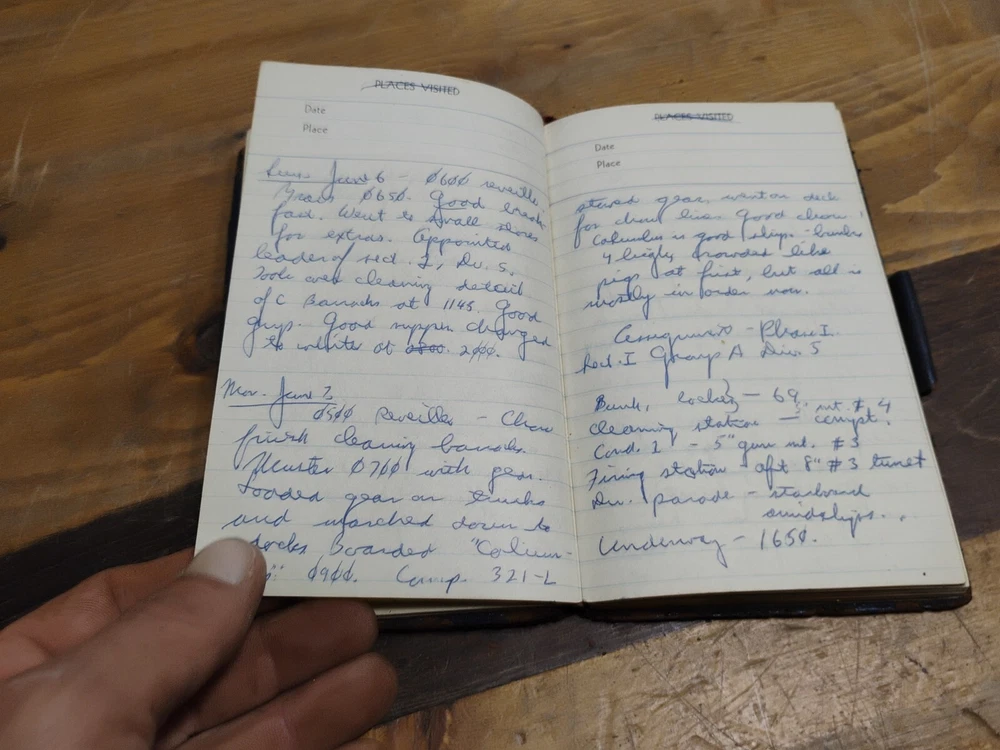 PLACES VISITED
Date
Place
Sun. June 6 - 0600 reveille
0650. Good break
fast. Went to small stores
for extras. Appointed
leader of sect. I, Div. 5.
Took over cleaning detail
of C Barracks at 1145. Good
guys. Good supper changed
to white at 2000.
Mon. June 7
0500 Reveille - Chow
finish cleaning barracks.
Muster 0700 with gear.
Loaded gear on trucks
and marched down to
docks boarded "Colum-
" 0900. Comp. 321-L
PLACES VISITED
Date
Place
stowed gear, went on deck
for chow line. Good chow!
Columbus is good ship - bunks
4 high, crowded like
pigs at first, but all is
mostly in order now.
Assignment - Phase I.
Sect. I Group A Div. 5
Bunk, locker - 69
cleaning station - mt. # 4
Cond. I - 5" gun mt. #3
Firing station aft 8" #3 turret
Div. parade - starboard
amidships.
Underway - 1650.